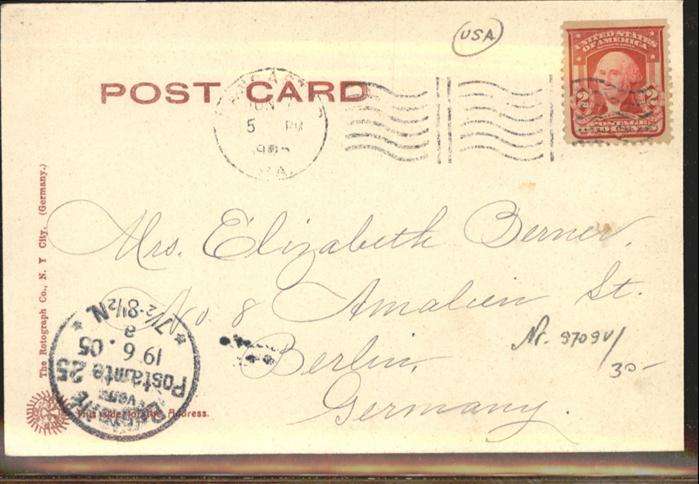 USA
UNITED STATES
OF AMERICA
2 2
POSTAGE
TWO CENTS
POST CARD
JUN
5 PM
PA.
Mrs. Elizabeth Berner,
No. 8 Amalien St.
Berlin,
Germany.
Nr. 9709V/
30-
The Rotograph Co., N. Y City. (Germany.)
Postamte 25
19 6. 05
a
* 7½-8½N *
This side for the Address.